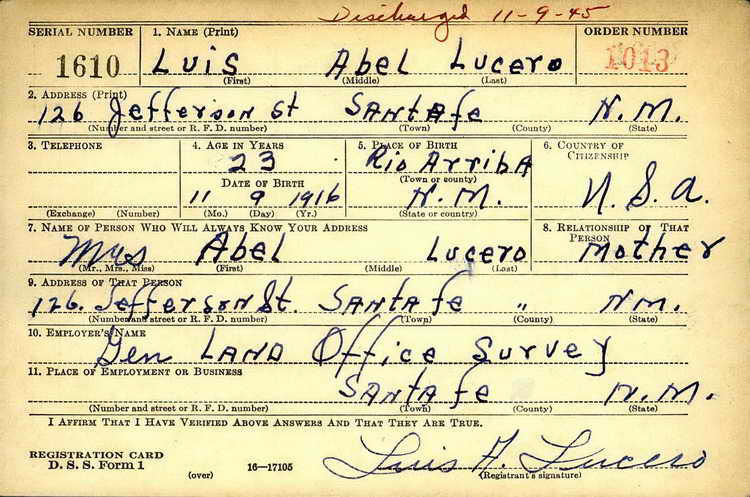 Discharged 11-9-45
SERIAL NUMBER 1. NAME (Print) ORDER NUMBER
1610 Luis Abel Lucero 1013
(First) (Middle) (Last)
2. ADDRESS (Print)
126 Jefferson St Santa fe N.M.
(Number and street or R. F. D. number) (Town) (County) (State)
3. TELEPHONE 4. AGE IN YEARS 5. PLACE OF BIRTH 6. COUNTRY OF CITIZENSHIP
23 Rio Arriba
(Town or county)
DATE OF BIRTH
11 9 1916 N.M. U.S.A.
(Exchange) (Number) (Mo.) (Day) (Yr.) (State or country)
7. NAME OF PERSON WHO WILL ALWAYS KNOW YOUR ADDRESS 8. RELATIONSHIP OF THAT PERSON
Mrs Abel Lucero Mother
(Mr., Mrs., Miss) (First) (Middle) (Last)
9. ADDRESS OF THAT PERSON
126. Jefferson St. Santa fe " NM.
(Number and street or R. F. D. number) (Town) (County) (State)
10. EMPLOYER'S NAME
Gen Land Office Survey
11. PLACE OF EMPLOYMENT OR BUSINESS
Santa fe N.M.
(Number and street or R. F. D. number) (Town) (County) (State)
I AFFIRM THAT I HAVE VERIFIED ABOVE ANSWERS AND THAT THEY ARE TRUE.
REGISTRATION CARD
D. S. S. Form 1 (over) 16—17105
Luis A. Lucero
(Registrant's signature)